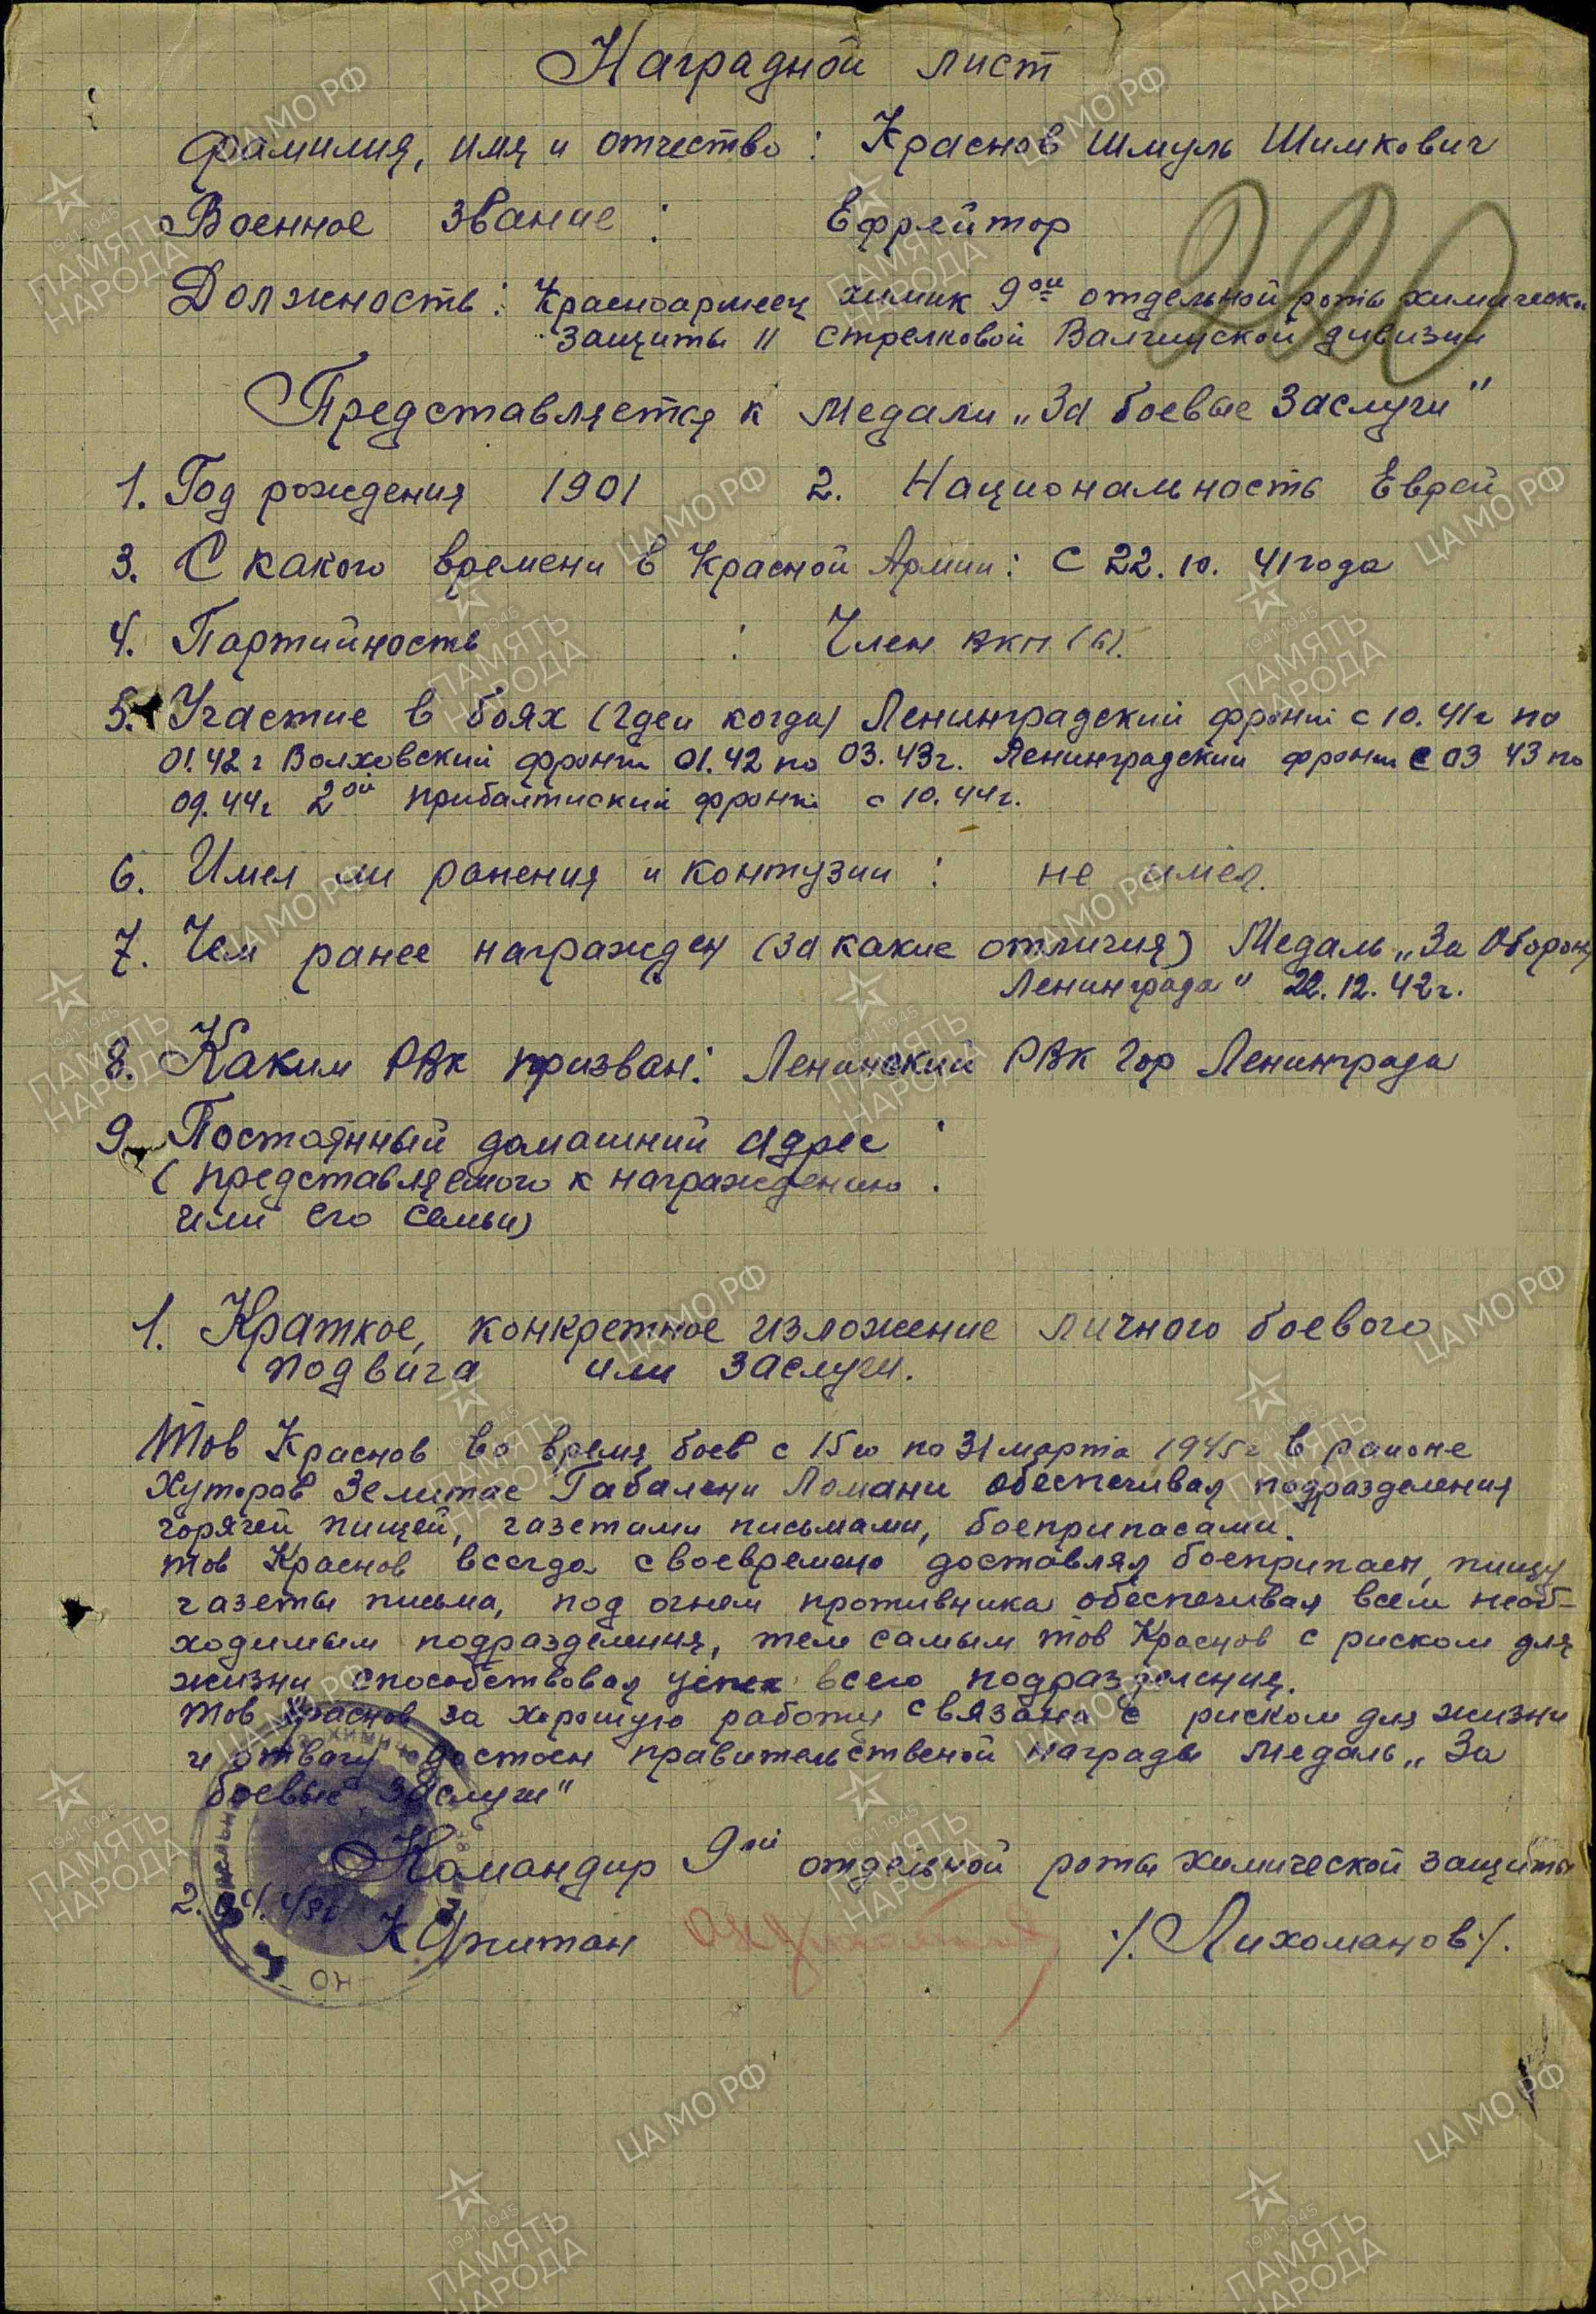 Наградной лист
Фамилия, имя и отчество: Краснов Шмуль Шимкович
Военное звание: Ефрейтор
Должность: Красноармеец химик 9ой отдельной роты химическ
защиты 11 стрелковой Валгинской дивизии
Представляется к медали „За боевые заслуги"
1. Год рождения 1901 2. Национальность Еврей
3. С какого времени в Красной Армии: С 22.10.41 года
4. Партийность : Член ВКП(б).
5. Участие в боях (где и когда) Ленинградский фронт с 10.41г по
01.42г Волховский фронт 01.42 по 03.43г. Ленинградский фронт с 03 43 по
09.44г 2ой прибалтиский фронт с 10.44г.
6. Имел ли ранения и контузии: не имел.
7. Чем ранее награжден (за какие отличия) Медаль „За Оборону
Ленинграда" 22.12.42г.
8. Каким РВК призван: Ленинский РВК гор Ленинграда
9. Постоянный домашний адрес :
(представляемого к награждению :
или его семьи)
1. Краткое, конкретное изложение личного боевого
подвига или заслуги.
Тов Краснов во время боев с 15го по 31 марта 1945г в районе
Хуторов Землитас Габалени Ломани обеспечивал подразделения
горячей пищей, газетами письмами, боеприпасами.
тов Краснов всегда своевремено доставлял боеприпасы, пищу
газеты письма, под огнем противника обеспечивал всем необ-
ходимым подразделения, тем самым тов Краснов с риском для
жизни способствовал успех всего подразделения.
тов Краснов за хорошую работу связана с риском для жизни
и отвагу достоен правительственой награды медаль „За
боевые заслуги"
Командир 9ой отдельной роты химической защиты
2.04.45г Капитан /. Лихоманов /.
ЦАМО РФ
ПАМЯТЬ НАРОДА
1941-1945